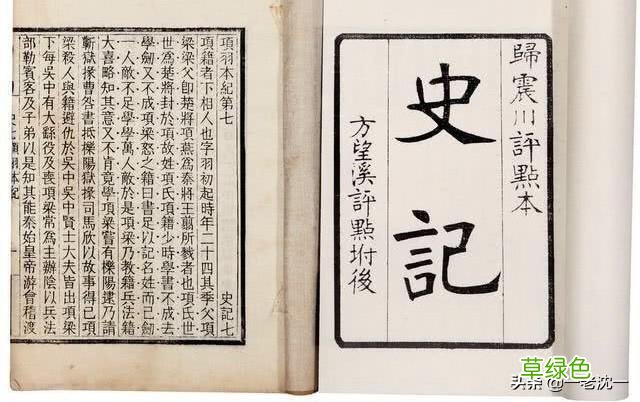 歸震川評點本
史記
方望溪評點坿後
項羽本紀第七 史記七
項籍者下相人也字羽初起時年二十四其季父項
梁梁父卽楚將項燕爲秦將王翦所戮者也項氏世
世爲楚將封於項故姓項氏項籍少時學書不成去
學劍又不成項梁怒之籍曰書足以記名姓而已劍
一人敵不足學學萬人敵於是項梁乃教籍兵法籍
大喜略知其意又不肯竟學項梁嘗有櫟陽逮乃請
蘄獄掾曹咎書抵櫟陽獄掾司馬欣以故事得已項
梁殺人與籍避仇於吳中吳中賢士大夫皆出項梁
下每吳中有大繇役及喪項梁常爲主辦陰以兵法
部勒賓客及子弟以是知其能秦始皇帝游會稽渡
草绿色
头条 @一老沈一